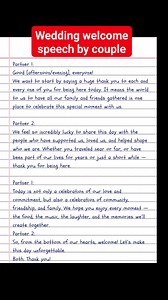 Wedding welcome
speech by couple
Partner 1:
Good [afternoon/evening], everyone!
We want to start by saying a huge thank you to each and
every one of you for being here today. It means the world
to us to have all our family and friends gathered in one
place to celebrate this special moment with us.
Partner 2:
We feel so incredibly lucky to share this day with the
people who have supported us, loved us, and helped shape
who we are. Whether you traveled near or far, or have
been part of our lives for years or just a short while —
thank you for being here.
Partner 1:
Today is not only a celebration of our love and
commitment, but also a celebration of community,
friendship, and family. We hope you enjoy every moment —
the food, the music, the laughter, and the memories we'll
create together.
Partner 2:
So, from the bottom of our hearts, welcome! Let's make
this day unforgettable.
Both: Thank you!